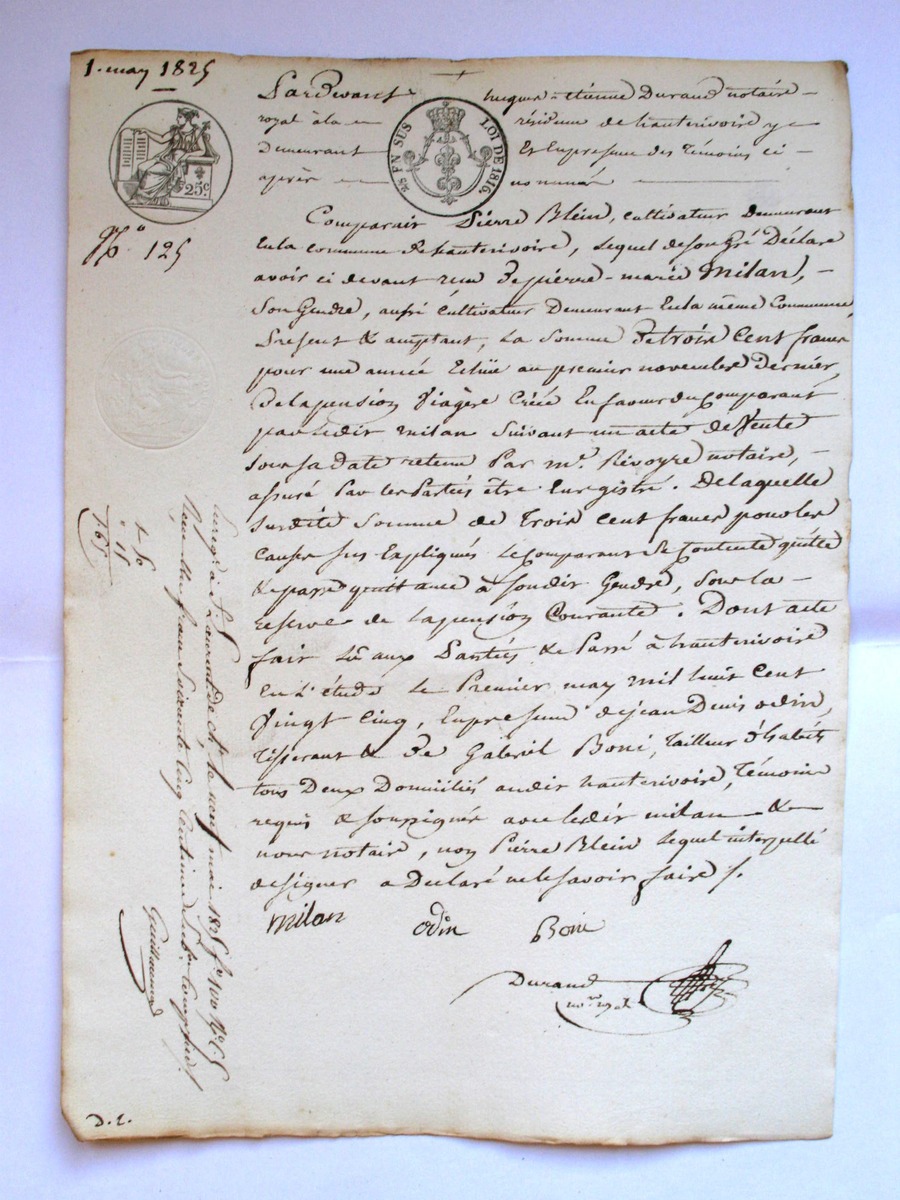 1. may 1825
Pardevant hugues-étienne Durand notaire
royal à la résidence de hauterivoire y
Demeurant Et En presence des Témoins ci-
après nommés
25c.
25 EN SUS LOI DE 1816.
No. 125
Comparait Pierre Blein, cultivateur Demeurant
En la commune de hauterivoire, lequel de son Gré Déclare
avoir ci devant reçu De pierre-marie Milan,
son Gendre, aussi cultivateur Demeurant En la même Commune,
Present & acceptant, La somme De trois Cent francs
pour une année Echue au premier novembre Dernier,
De la pension Viagère Créée En faveur du Comparant
par ledit milan suivant un acte de Vente
sous sa date retenu Par me. Révoyre notaire,
assuré Par les Parties être Enregistré. De laquelle
surdite somme de Trois cent francs pour les
causes sus Expliqués Le comparant se contente quitte
& passe quittance à sondit Gendre, sous la
reserve de la pension Courante. Dont acte
fait Lû aux Parties & Passé à hauterivoire
En L'étude Le Premier may mil huit cent
Vingt Cinq, En presence de jean Denis odin,
Tisserant & De Gabriel Boni, Tailleur D'habits
tous Deux Domiciliés audit hauterivoire, Témoins
requis & soussignés avec ledit milan &
nous notaire, non Pierre Blein lequel interpellé
de signer a Déclaré ne le savoir faire /.
milan odin Boni
Durand
nre. royal
Enregé. à St. Laurent de Ch. le neuf mai 1825 fo. 100 Vo. C. 5
Reçu un franc soixante cinq centimes subv. comprise /.
Guillaumond
1 50
" 15
1,65
D. E.